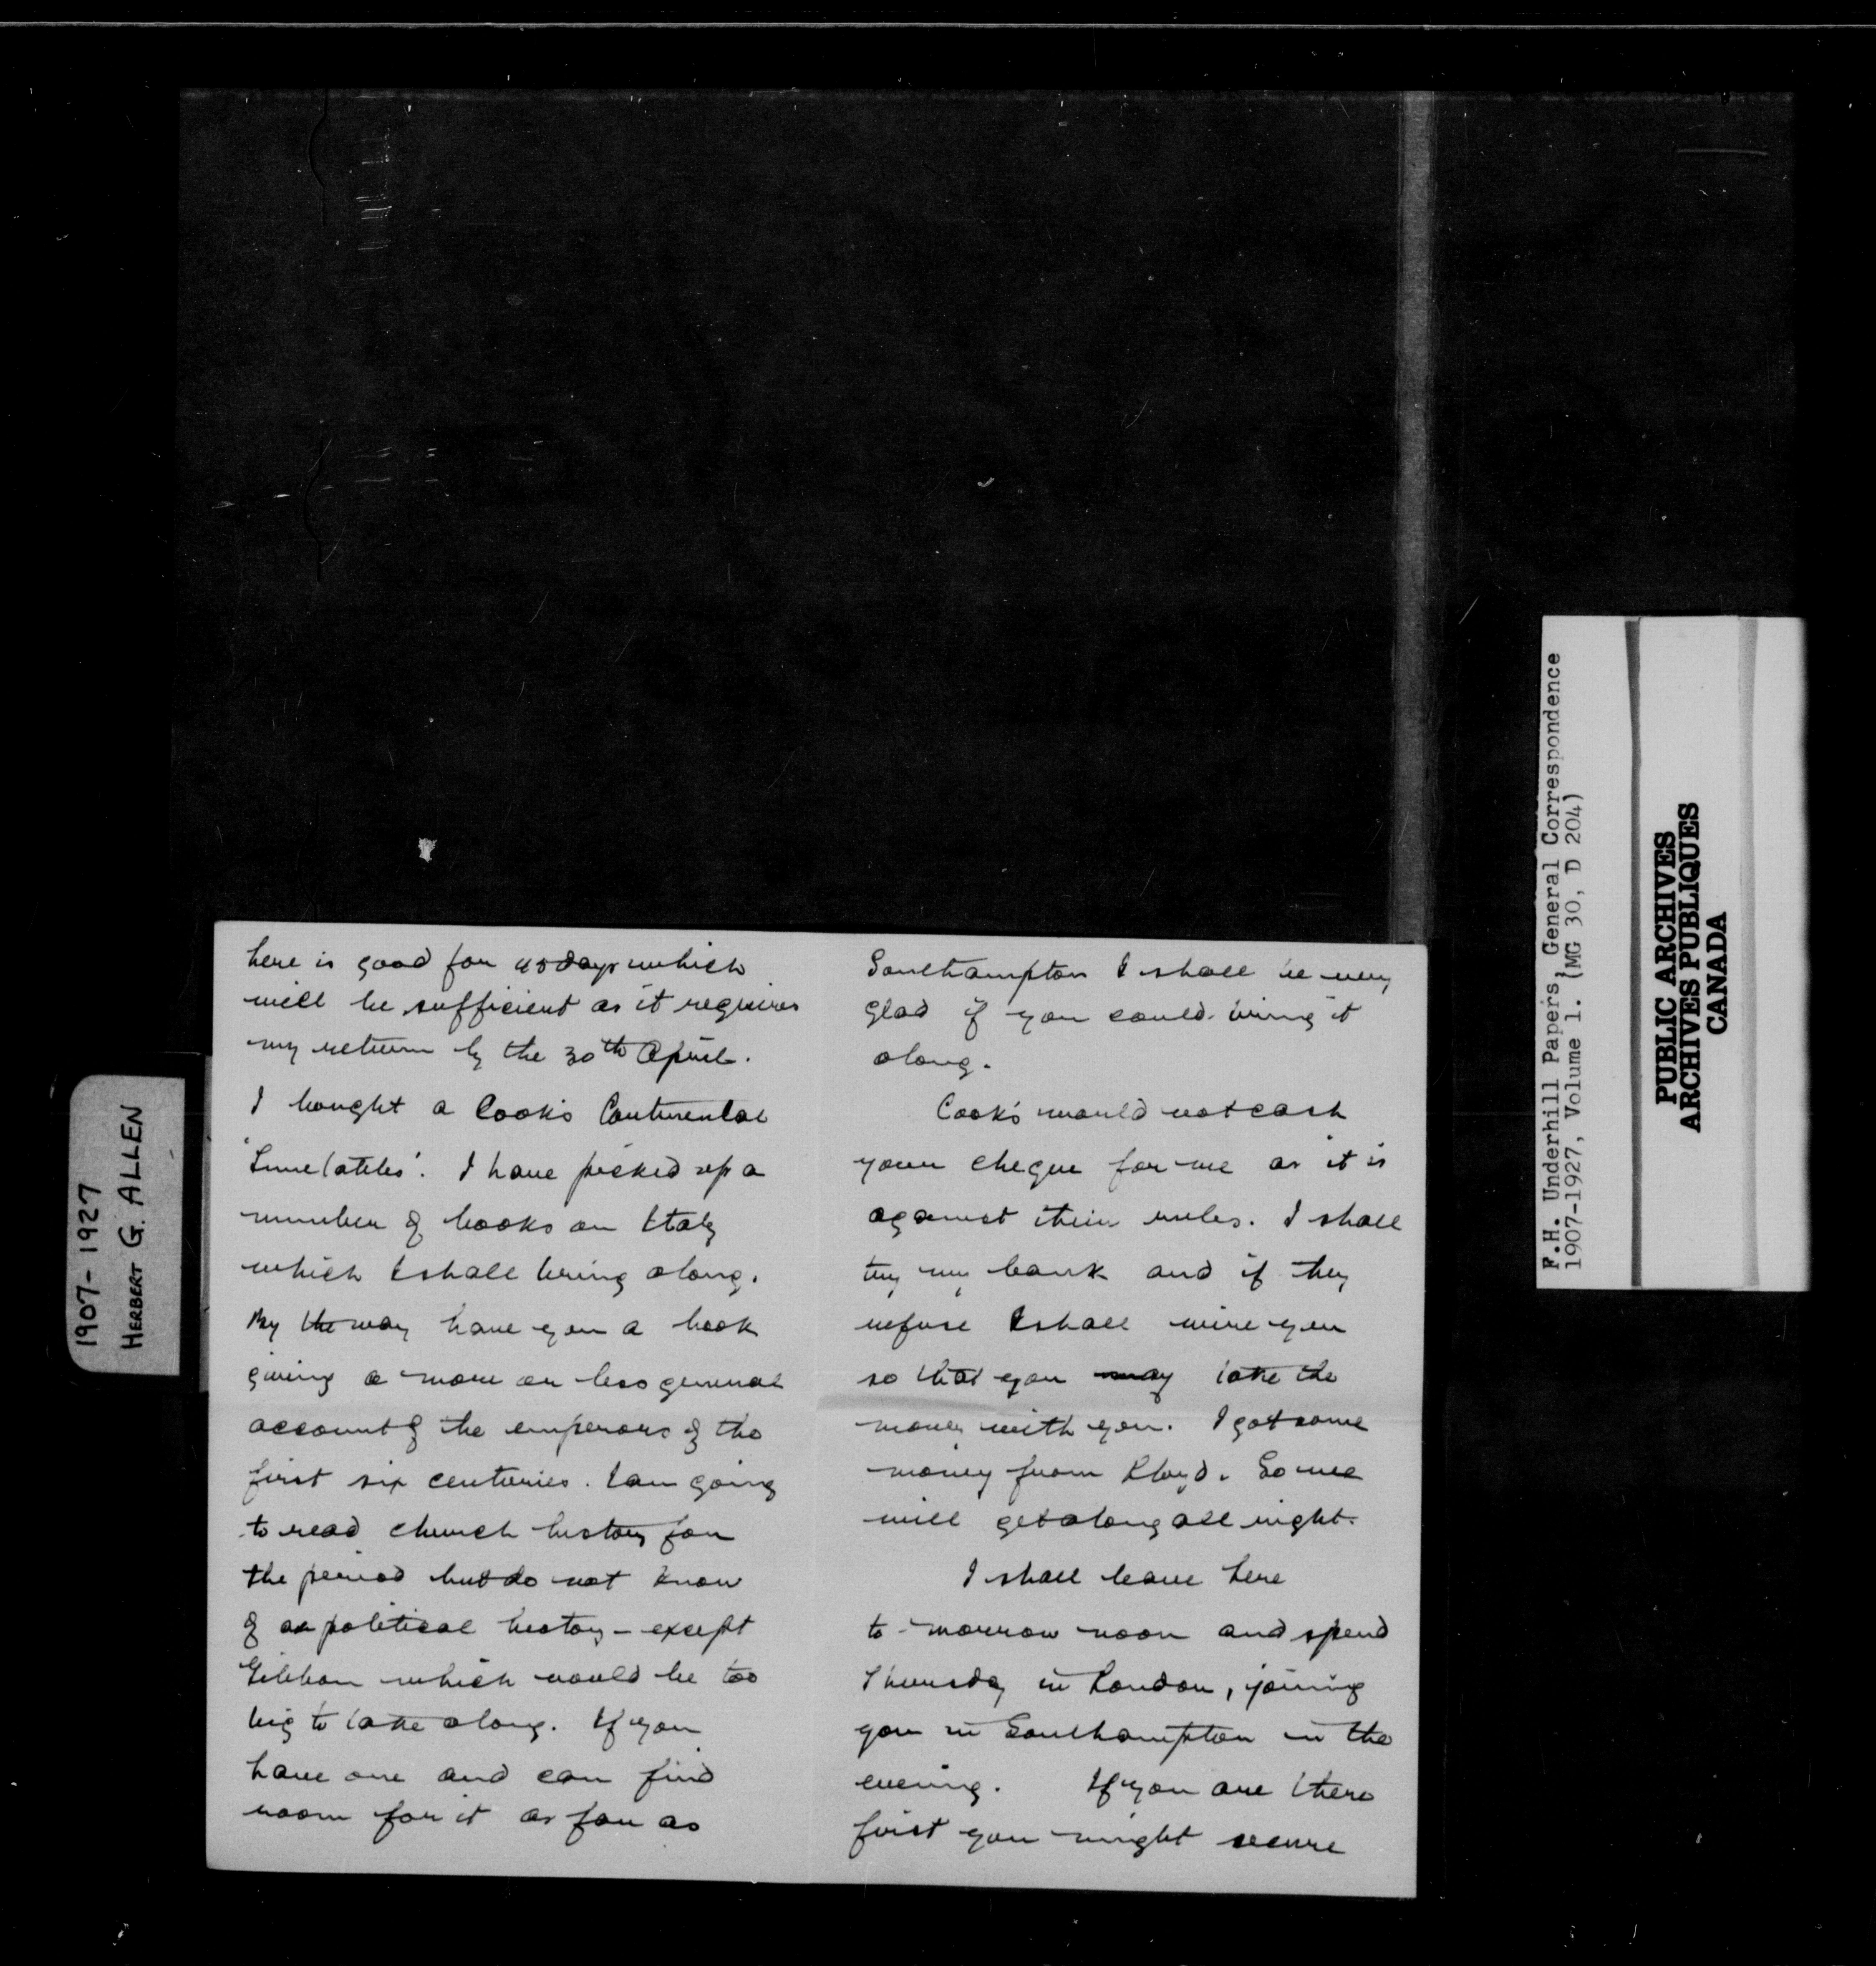 1907-1927
HERBERT G. ALLEN
here is good for 45 days which
will be sufficient as it requires
my return by the 30th April.
I bought a Cook's Continental
'Timetables'. I have picked up a
number of books on Italy
which I shall bring along.
By the way have you a book
giving a more or less general
account of the emperors of the
first six centuries. I am going
to read church history for
the period but do not know
of a political history - except
Gibbon which would be too
big to take along. If you
have one and can find
room for it as far as
Southampton I shall be very
glad if you could bring it
along.
Cook's would not cash
your cheque for me as it is
against their rules. I shall
try my bank and if they
refuse I shall wire you
so that you may take the
money with you. I got some
money from Lloyd. So we
will get along all right.
I shall leave here
to-morrow noon and spend
Thursday in London, joining
you in Southampton in the
evening. If you are there
first you might secure
F.H. Underhill Papers, General Correspondence
1907-1927, Volume 1. (MG 30, D 204)
PUBLIC ARCHIVES
ARCHIVES PUBLIQUES
CANADA